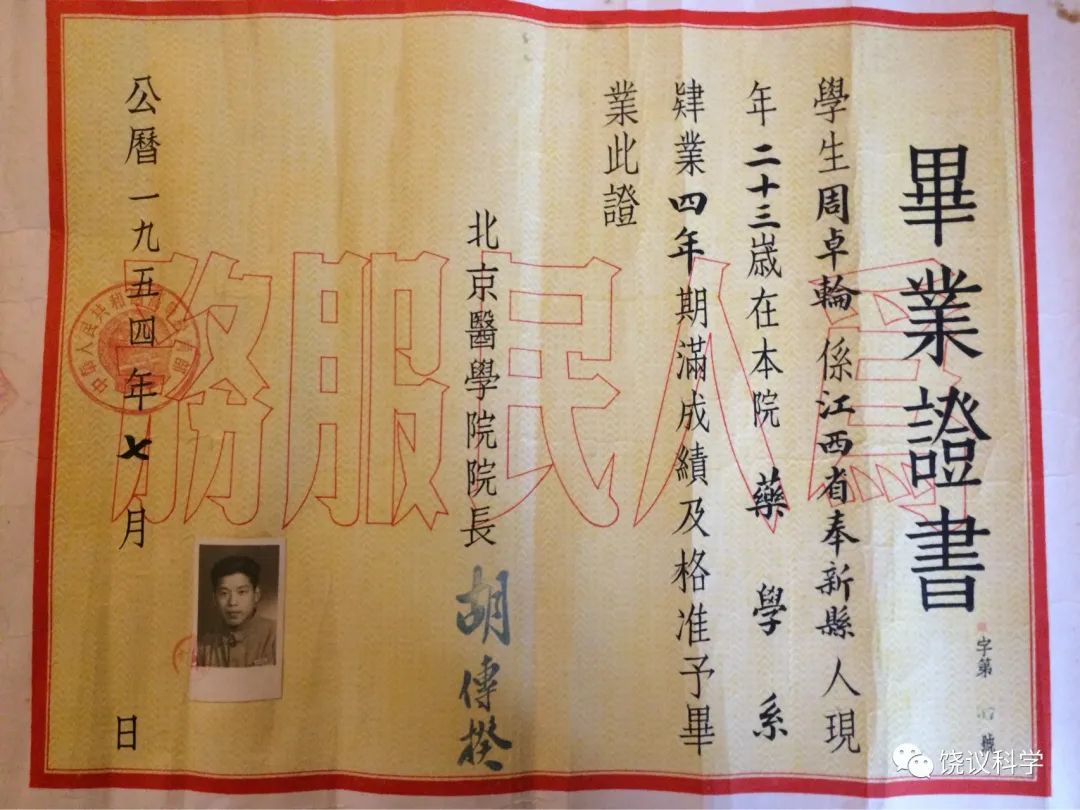 畢業證書
字第 號
學生周卓輪係江西省奉新縣人現
年二十三歲在本院藥學系
肄業四年期滿成績及格准予畢
業此證
北京醫學院院長 胡傳揆
公曆一九五四年七月 日
為人民服務
中華人民共和國
饶议科学